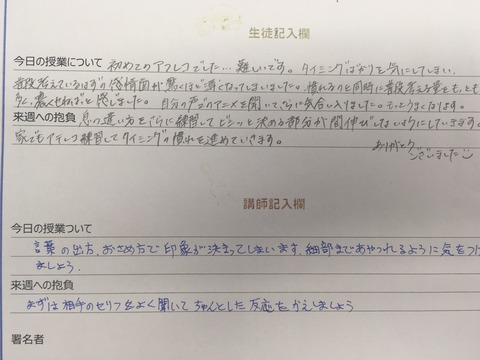 生徒記入欄
今日の授業について 初めてのアフレコでした…難しいです。タイミングばかりを気にしてしまい、
普段考えているはずの感情面が驚くほど薄くなってしまいました。慣れるのと同時に普段考える量をもっと
多く、濃くせねばと感じました。自分の声でアニメを聞いてさらに気合い入りました。もっとうまくなります。
来週への抱負 息の遣い方をさらに練習してビシッと決める部分が間伸びしないようにしていきます。
家でもアテレコ練習してタイミングの慣れを進めていきます。
ありがとう
ございました
講師記入欄
今日の授業ついて
言葉の出方、おさめ方で印象が決まってしまいます、細部まであやつれるように気をつけ
ましょう.
来週への抱負
まずは相手のセリフをよく聞いて ちゃんとした反応をかえしましょう
署名者